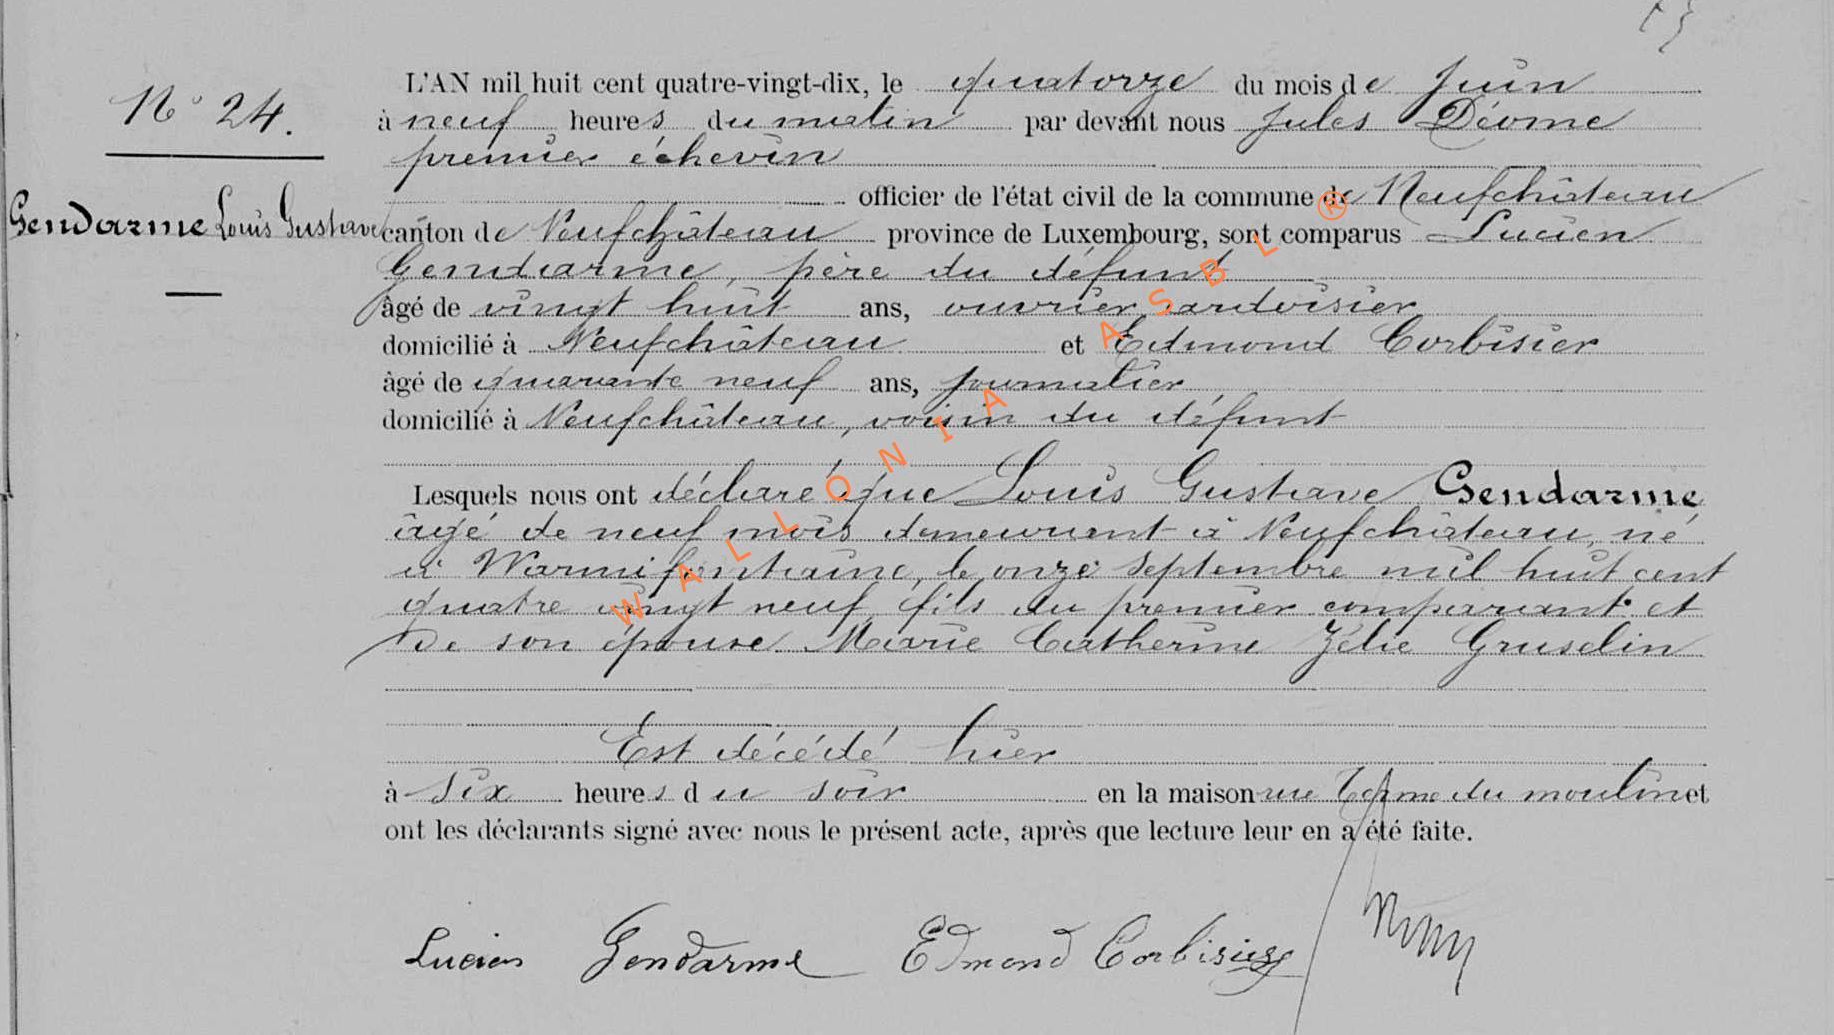 N° 24.
Gendarme Louis Gustave
L'AN mil huit cent quatre-vingt-dix, le quatorze du mois de Juin
à neuf heures du matin par devant nous Jules Déome
premier échevin
officier de l'état civil de la commune de Neufchâteau
canton de Neufchâteau province de Luxembourg, sont comparus Lucien
Gendarme, père du défunt
âgé de vingt huit ans, ouvrier ardoisier
domicilié à Neufchâteau et Edmond Corbisier
âgé de quarante neuf ans, journalier
domicilié à Neufchâteau, voisin du défunt
Lesquels nous ont déclaré que Louis Gustave Gendarme
âgé de neuf mois demeurant à Neufchâteau, né
à Warmifontaine, le onze septembre mil huit cent
quatre vingt neuf, fils du premier comparant et
de son épouse Marie Catherine Zélie Gruselin
Est décédé hier
à six heures du soir en la maison rue du moulin et
ont les déclarants signé avec nous le présent acte, après que lecture leur en a été faite.
Lucien Gendarme Edmond Corbisier
WALLONIA ASBL ®